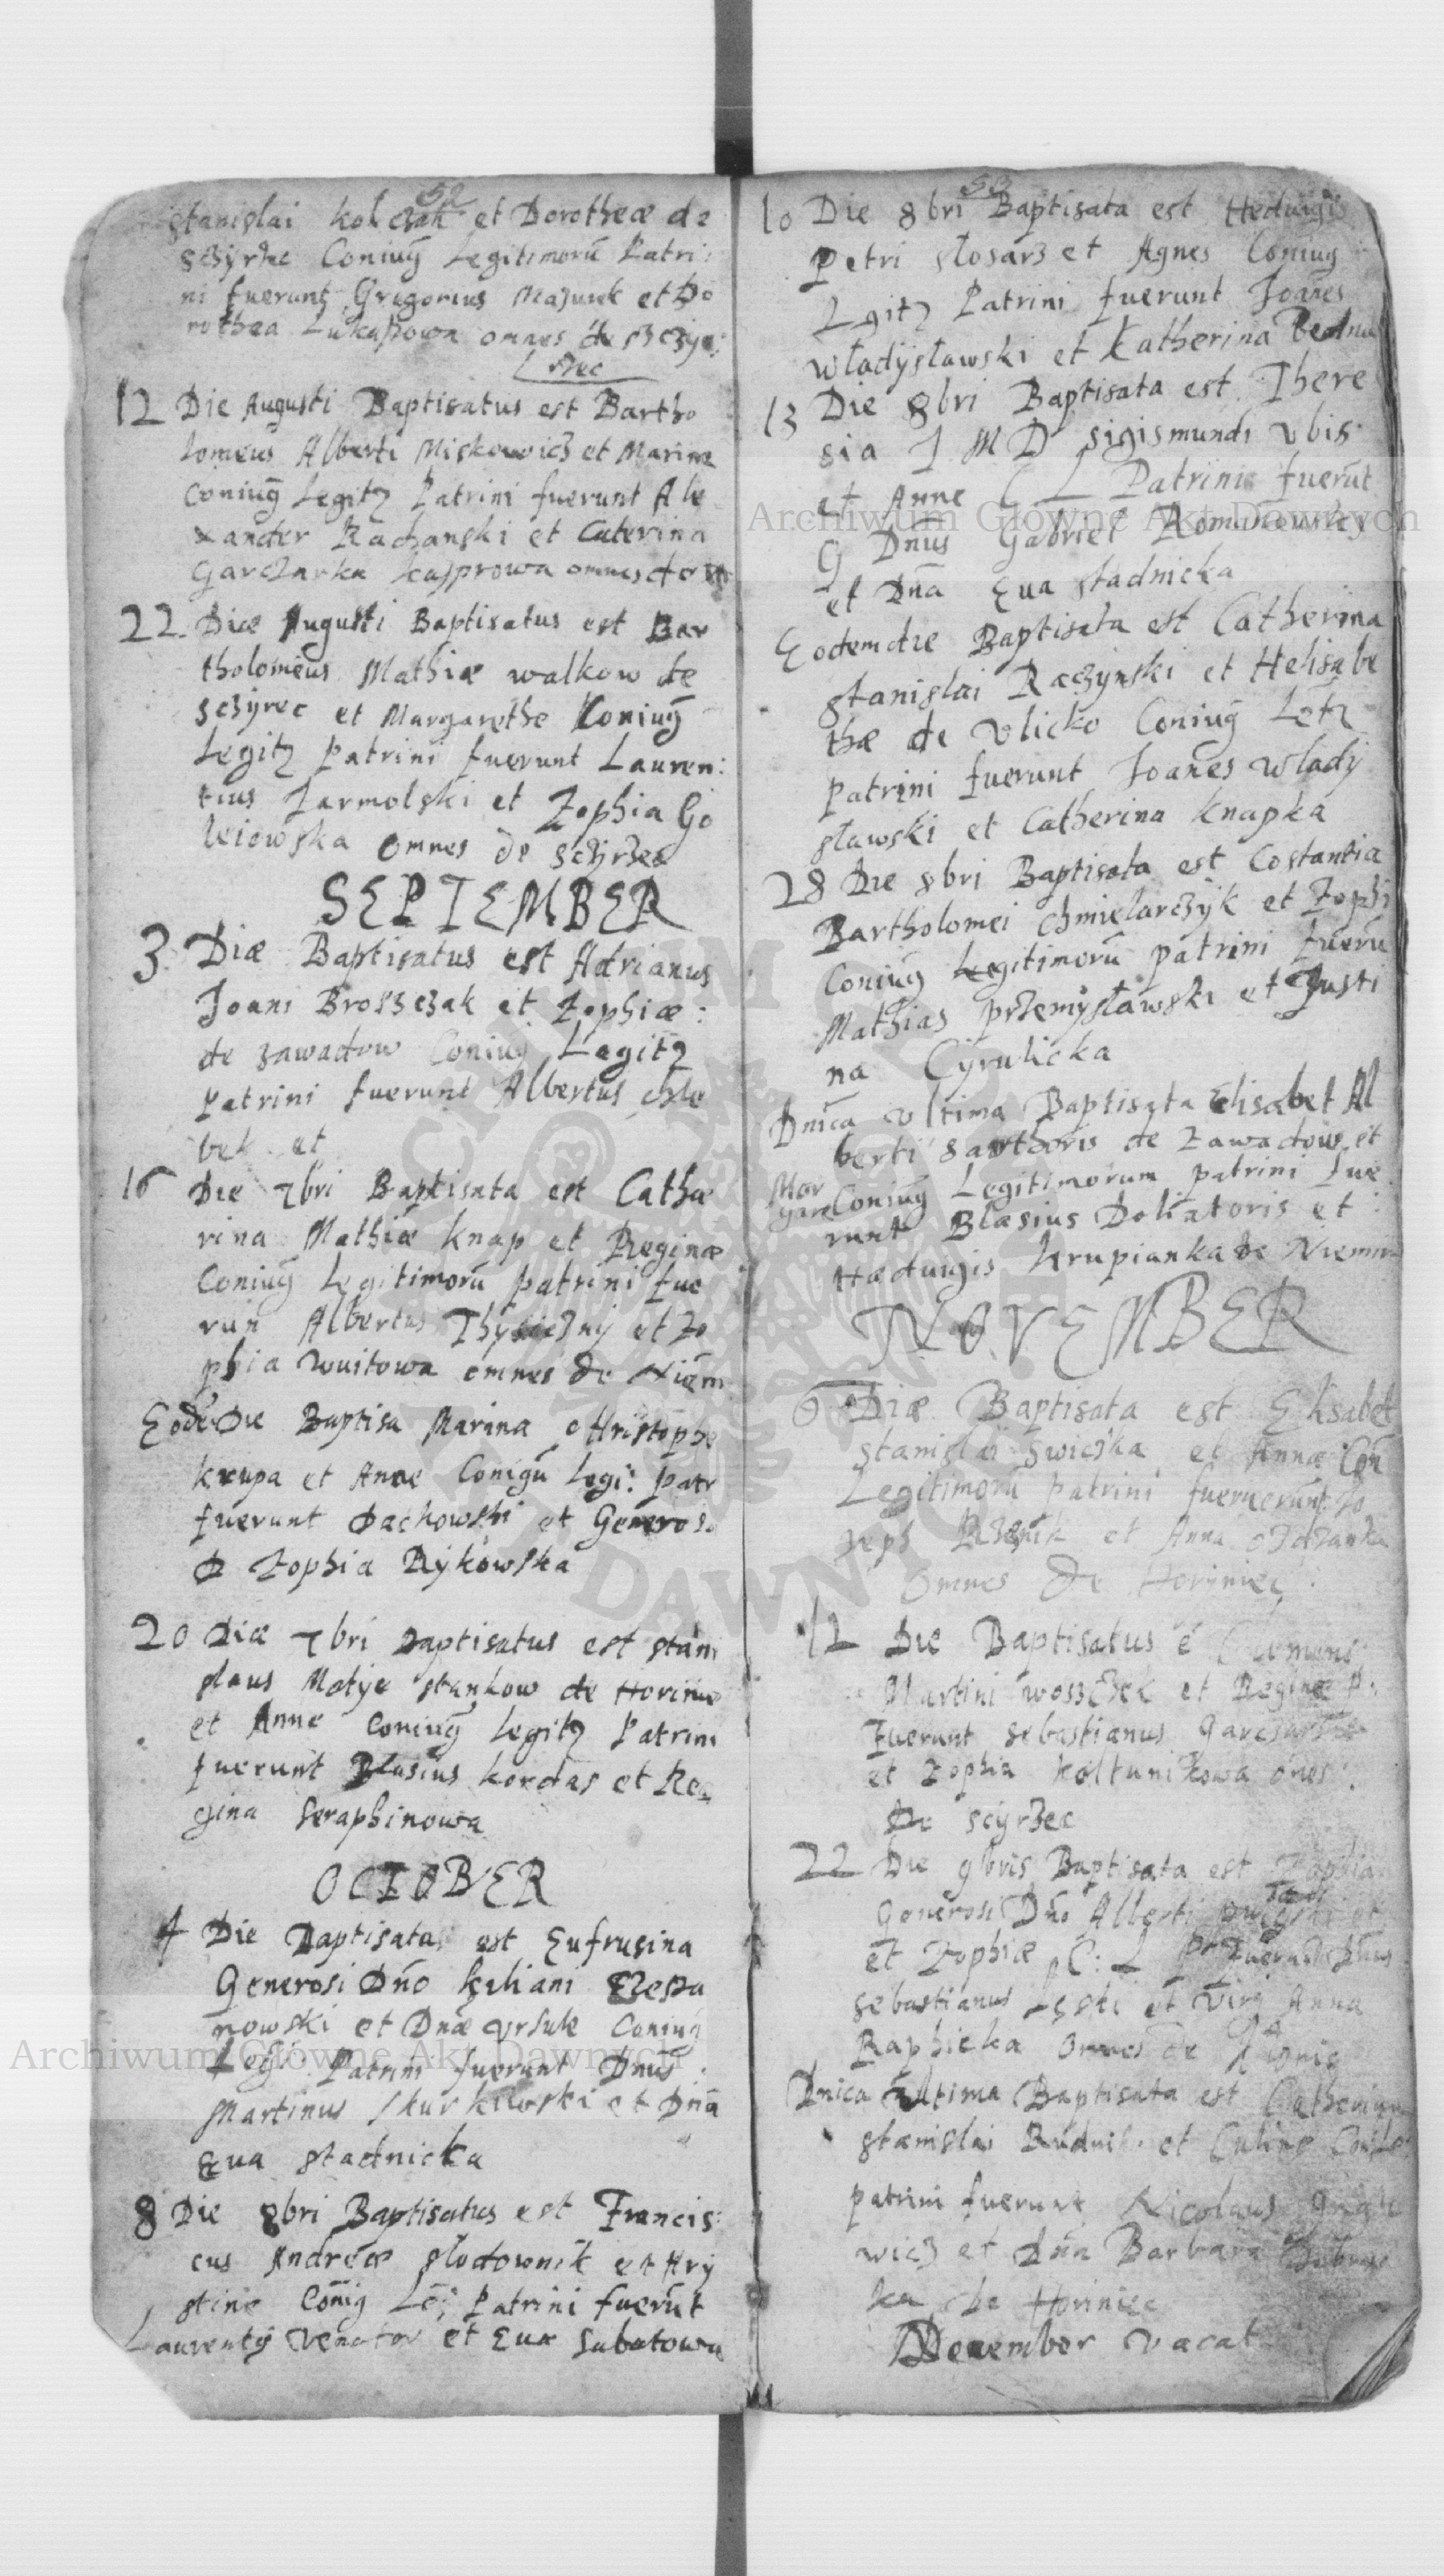 52
Stanislai kolczak et Dorotheæ de
Sczyrzec Coniug̃ Legitimorũ Patri:
ni fuerunt Gregorius Mazurek et Do
rothea Lukaszowa omnes de Szczyr:
rzec
12 Die Augusti Baptisatus est Bartho
lomeus Alberti Miskowicz et Marinæ
Coniug̃ Legitz Patrini fuerunt Ale
xander Rachanski et Caterina
Garczarka kasprowa omnes de
22. Diæ Augusti Baptisatus est Bar
tholomeus Mathiæ walkow de
Sczyrec et Margarethe Coniug̃
Legitz Patrini fuerunt Lauren:
tius Jarmolski et Zophia Go
leiowska Omnes de Sczyrzec
SEPTEMBER
3 Diæ Baptisatus est Adrianus
Joani Broszczak et Zophiæ:
de zawadow Coniug Legitz
Patrini fuerunt Albertus chle
bek et
16 Die 7bri Baptisata est Cathæ
rina Mathiæ knap et Reginæ
Coniug̃ Legitimorũ patrini fue
run Albertus et Zo
phia wuitowa omnes de Niem
Eodẽ Die Baptisa Marina Christophe
krupa et Anne Conigũ Legi: Patr
fuerunt Dachowski et Generosa
D Zophia Rykowska
20 Diæ 7bri Baptisatus est stani
slaus Matye stankow de Horinie
et Anne Coniug̃ Legitz Patrini
fuerunt Blasius kordas et Re
gina Seraphinowa
OCTOBER
4 Die Baptisata est Eufrusina
Generosi Dño kiliani
nowski et Dñæ Ursule Coniug
Legi Patrini fuerunt Dñus
Martinus et Dña
Eua stadnicka
8 Die 8bri Baptisatus est Francis:
cus Andreæ slodownik et Hry
stine Coñig Le: Patrini fuerũt
Laurenty Venator et Eua Sabatowa
53
10 Die 8bri Baptisata est Heduigis
Petri slosarz et Agnes Coniug
Lgitz Patrini fuerunt Joañes
wladyslawski et Katherina Bedna
13 Die 8bri Baptisata est There
sia J M D Sigismundi Vbis
et Anne C L Patrini fuerũt
G Dñus Gabriel Romanowsky
et Dña Eua stadnicka
Eodem die Baptisata est Catherina
stanislai Raczynski et Helisabe
thæ de Vlicko Coniug̃ Letz
Patrini fuerunt Joañes wlady
slawski et Catherina knapka
28 Die 8bri Baptisata est Costantia
Bartholomei chmielarczyk et Zophi
Coniug̃ Legitimorũ patrini fuerũ
Mathias przemyslawski et Justi
na Cyrulicka
Dñica Vltima Baptisata Elisabet Al
berti Sarthoris de Zawadow et
Mar
gare Coniug̃ Legitimorum patrini fue
runt Blasius Doliatoris et
Hæduigis krupianka de Niemir
NOVEMBER
6 Diæ Baptisata est Elisabet
Stanislai Swiczka et Annæ Con
Legitimorũ patrini fueruerunt Jo
zeph Rzeznik et Anna
Omnes De Horyniec
12 Die Baptisatus ẽ Clemens
Martini woszczek et Reginæ P.
Fuerunt Sebastianus
et Zophia koltunikowa oñes
De Sczyrzec
22 Die 9bris Baptisata est Zophia
Generosi Dño Alberti et
et Zophiæ C: L Pr Fuerunt Dñus
Sebastianus Lęski et Virg Anna
Raphicka Omnes de
Dnica Vltima Baptisata est Catherina
Stanislai Rudnik et
patrini fuerunt Nicolaus
wicz et Dña Barbara
ka De Horiniec
December vacat
Archiwum Główne Akt Dawnych
Archiwum Główne Akt Dawnych